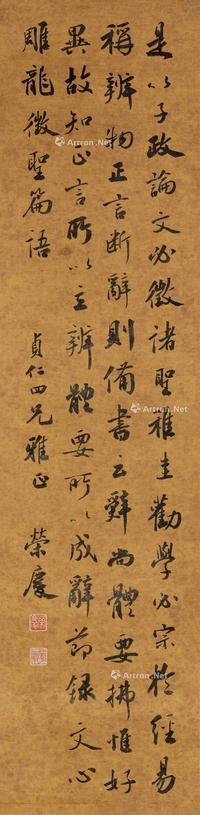 是以子政論文必徵諸聖稚圭勸學必宗於經易
稱辨物正言断辭則備書云辭尚體要拂惟好
異故知正言所以立辨體要所以成辭節録文心
雕龍徵聖篇語 貞仁四兄雅正 榮慶
Artron.Net
Artron.Net
Artron.Net
Artron.Net
Artron.Net
Artron.Net